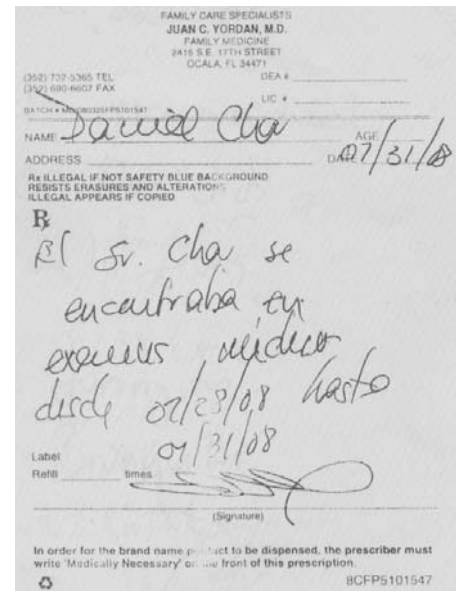 FAMILY CARE SPECIALISTS
JUAN C. YORDAN, M.D.
FAMILY MEDICINE
2415 S.E. 17TH STREET
OCALA, FL 34471
(352) 737-5365 TEL DEA #
(352) 690-6607 FAX
LIC #
BATCH #
NAME Daniel Cha AGE
ADDRESS DATE 07/31/08
Rx ILLEGAL IF NOT SAFETY BLUE BACKGROUND
RESISTS ERASURES AND ALTERATIONS
ILLEGAL APPEARS IF COPIED
Rx
El Sr. Cha se
encontraba en
examenes médicos
desde 07/28/08 hasta
07/31/08
Label
Refill times
(Signature)
In order for the brand name product to be dispensed, the prescriber must
write 'Medically Necessary' on the front of this prescription.
8CFP5101547